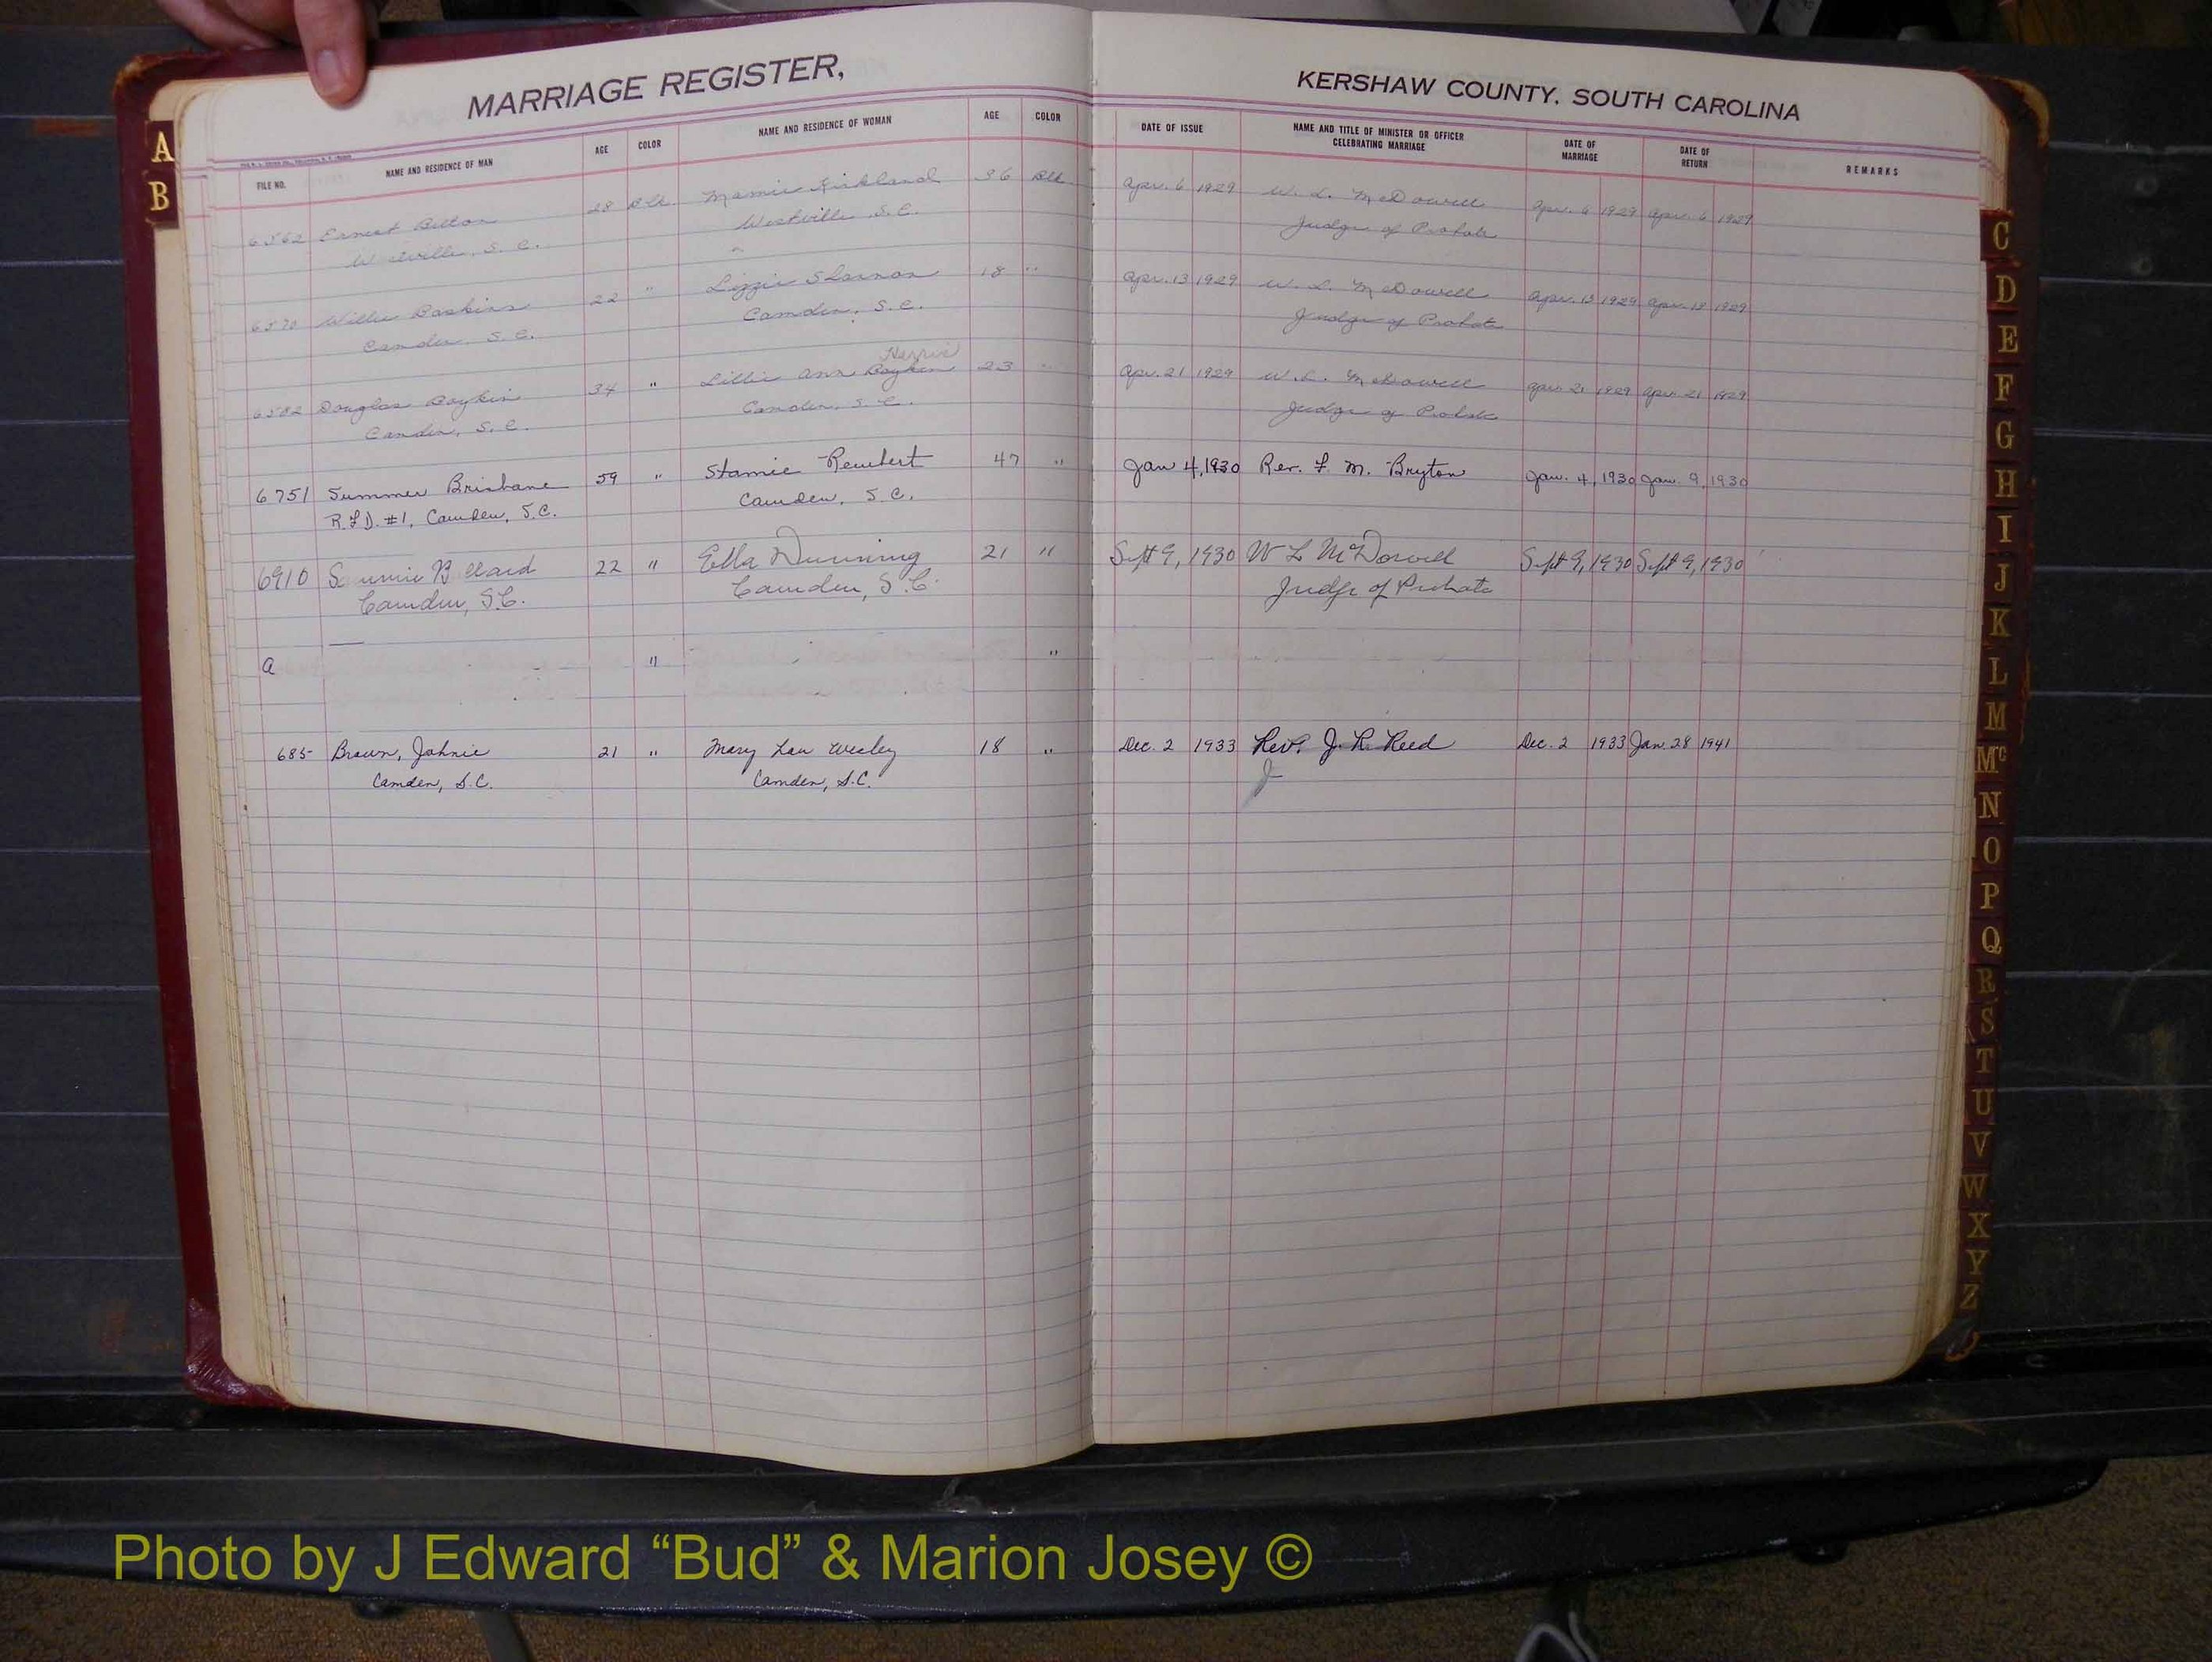 MARRIAGE REGISTER,
KERSHAW COUNTY, SOUTH CAROLINA
FILE NO. NAME AND RESIDENCE OF MAN AGE COLOR NAME AND RESIDENCE OF WOMAN AGE COLOR DATE OF ISSUE NAME AND TITLE OF MINISTER OR OFFICER CELEBRATING MARRIAGE DATE OF MARRIAGE DATE OF RETURN REMARKS
6562 Ernest 28 Blk Mamie Kirkland 36 Blk Apr. 6 1929 W. L. McDowell Apr. 6 1929 Apr. 6 1929
Westville, S. C. Westville, S. C. Judge of Probate
6570 Willie Baskins 22 " Lizzie Shannon 18 " Apr. 13 1929 W. L. McDowell Apr. 13 1929 Apr. 13 1929
Camden, S. C. Camden, S. C. Judge of Probate
6582 Douglas Boykin 34 " Lillie Ann Boykin 23 " Apr. 21 1929 W. L. McDowell Apr. 21 1929 Apr. 21 1929
Camden, S. C. Camden, S. C. Judge of Probate
6751 Summer Brisbane 59 " Stamie 47 " Jan 4, 1930 Rev. F. M. Bryton Jan. 4, 1930 Jan. 9, 1930
R.F.D. #1, Camden, S.C. Camden, S. C.
6910 22 " Ella Dunning 21 " Sept 9, 1930 W L McDowell Sept 9, 1930 Sept 9, 1930
Camden, S.C. Camden, S.C. Judge of Probate
a " "
685- Brown, Johnie 21 " Mary Lou Wesley 18 " Dec. 2 1933 Rev. J. R. Reed Dec. 2 1933 Jan 28 1941
Camden, S.C. Camden, S.C. J
A
B
C
D
E
F
G
H
I
J
K
L
M
Mc
N
O
P
Q
R
S
T
U
V
W
X
Y
Z
Photo by J Edward “Bud” & Marion Josey ©